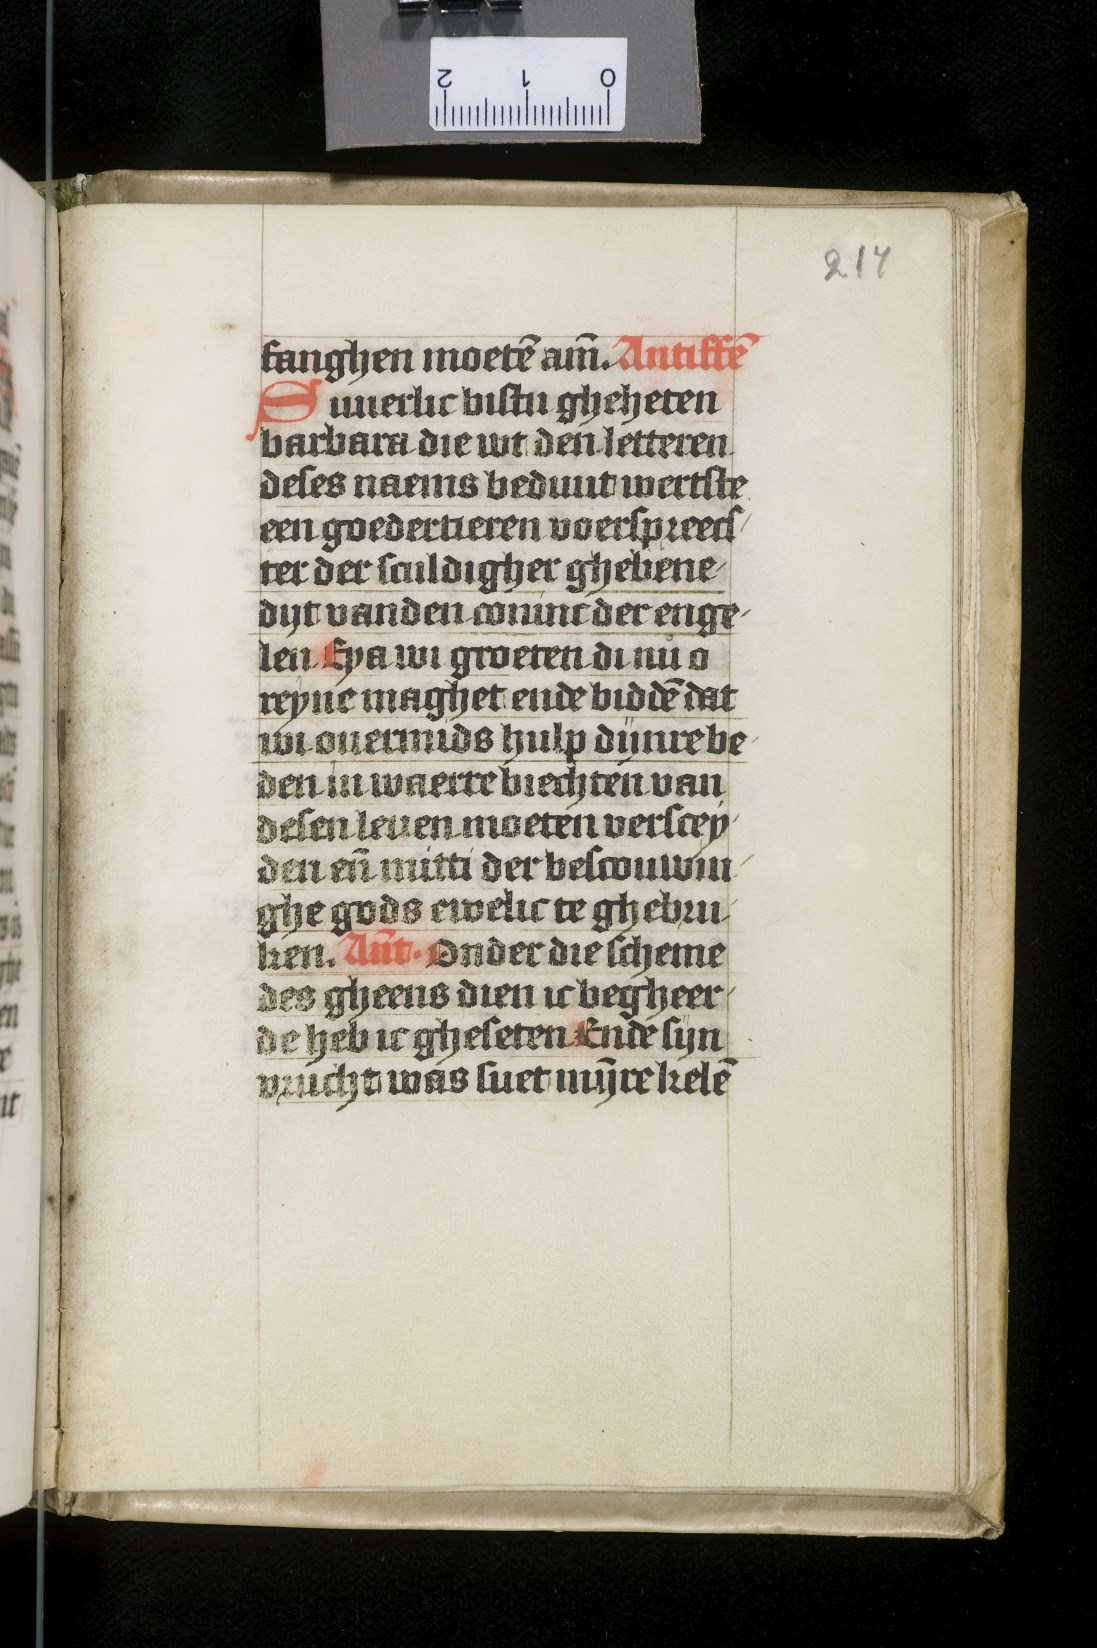 217
fanghen moetē am̄. Antiffē
Suuerlic bistu gheheten
barbara die wt den letteren
deses naems beduut wertste
een goedertieren voerspreecs
ter der sculdigher ghebene
dijt vanden coninc der enge
len Eya wi groeten di nu o
reyne maghet ende biddē dat
wi ouermids hulp dijnre be
den in waerre biechten van
desen leuen moeten verscey
den en̄ mitti der bescouwin
ghe gods ewelic te ghebru
ken. An̄t. Onder die scheme
des gheens dien ic begheer
de heb ic gheseten Ende sijn
vrucht was suet mȳre kelē
2 1 0